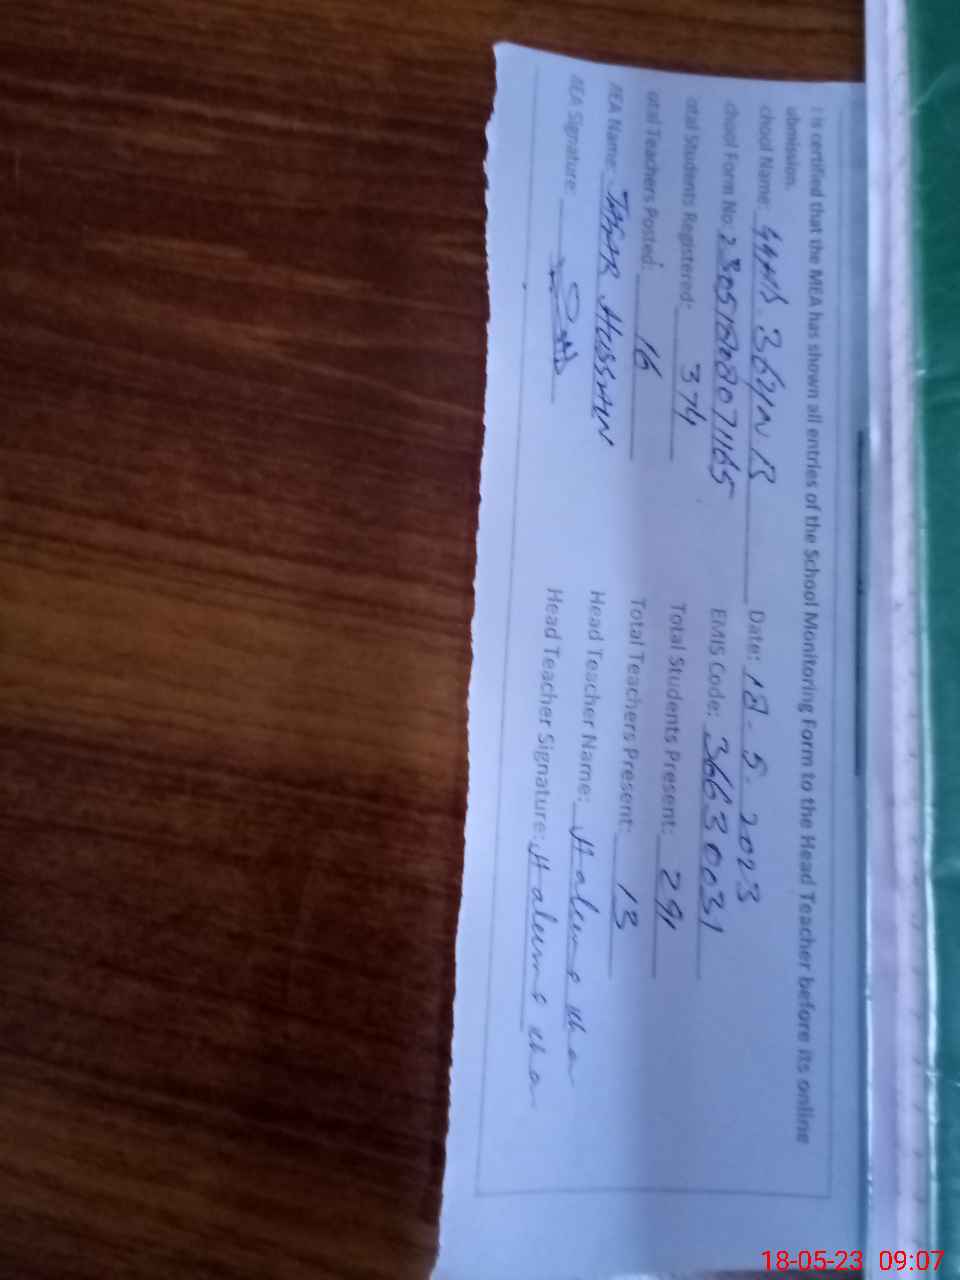 t is certified that the MEA has shown all entries of the School Monitoring Form to the Head Teacher before its online
ubmission.
chool Name: Date: 18-5-2023
chool Form No: EMIS Code: 36630031
otal Students Registered: 374 Total Students Present: 291
otal Teachers Posted: 16 Total Teachers Present: 13
MEA Name: HUSSAIN Head Teacher Name:
MEA Signature: Head Teacher Signature:
18-05-23 09:07